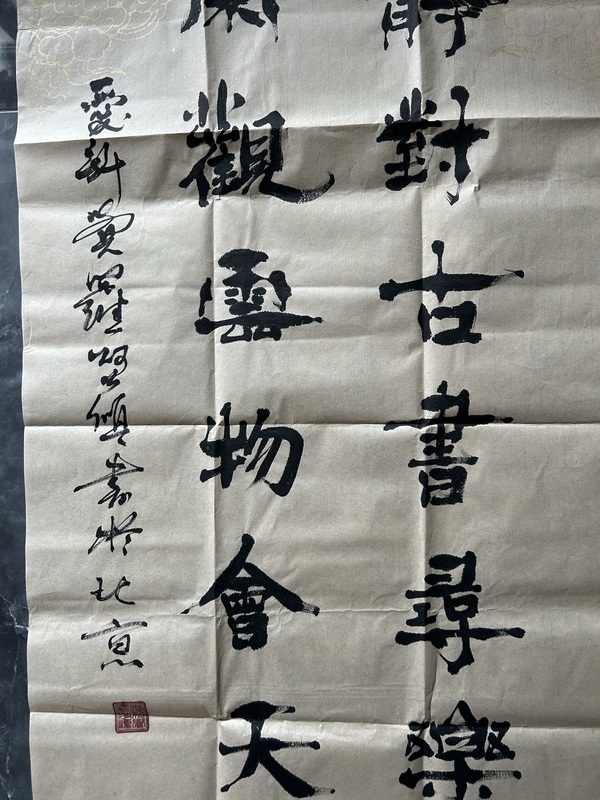 對古書尋樂
觀雲物會天
愛新覺羅 書於北京